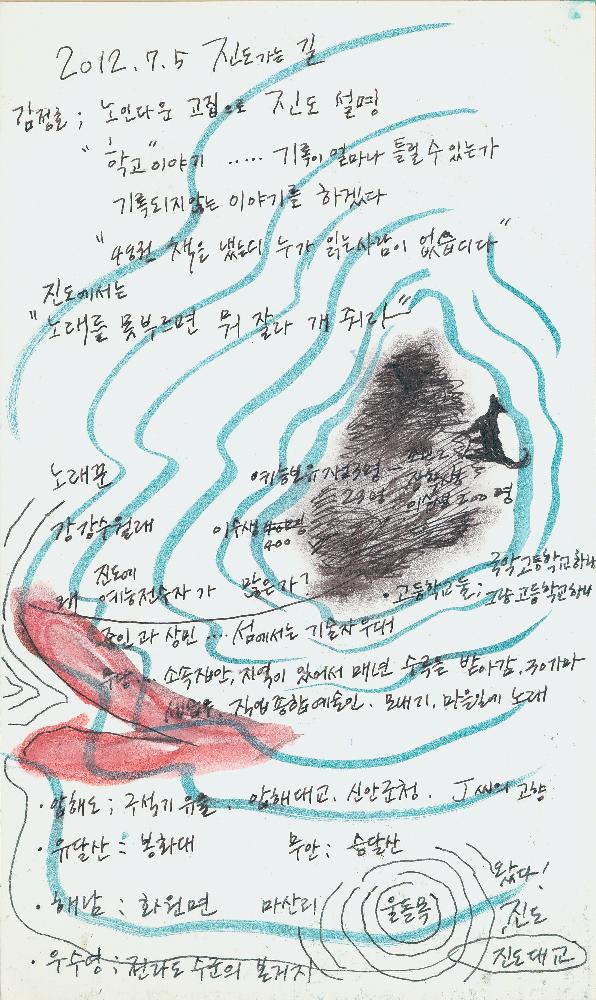 2012.7.5 진도가는 길
김정호 ; 노인다운 고집으로 진도 설명
"학교"이야기 ..... 기록이 얼마나 틀릴 수 있는가
기록되지않는 이야기를 하겠다
"48권 책을 냈는디 누가 읽는사람이 없습디다"
진도에서는
"노래를 못부르면 뭐 잘라 개 줘라"
노래꾼 예능보유자3명
29명
강강수월래 이수생 400
진도에
왜 예능전수자가 많은가?
· 고등학교둘; 국악고등학교하나
그냥고등학교하나
죄인과 상민 ... 섬에서는 기술자 우대
무당 ... 소속집안, 지역이 있어서 매년 수곡을 받아감, 30가마
세습무, 직업종합예술인. 모내기, 마을일에 노래
· 압해도; 구석기 유물. 압해대교. 신안군청. J씨의 고향
· 유달산 : 봉화대 무안; 승달산
· 해남 ; 화원면 마산리 울돌목
왔다!
진도
진도대교
· 우수영 ; 전라도 수군의 본거지